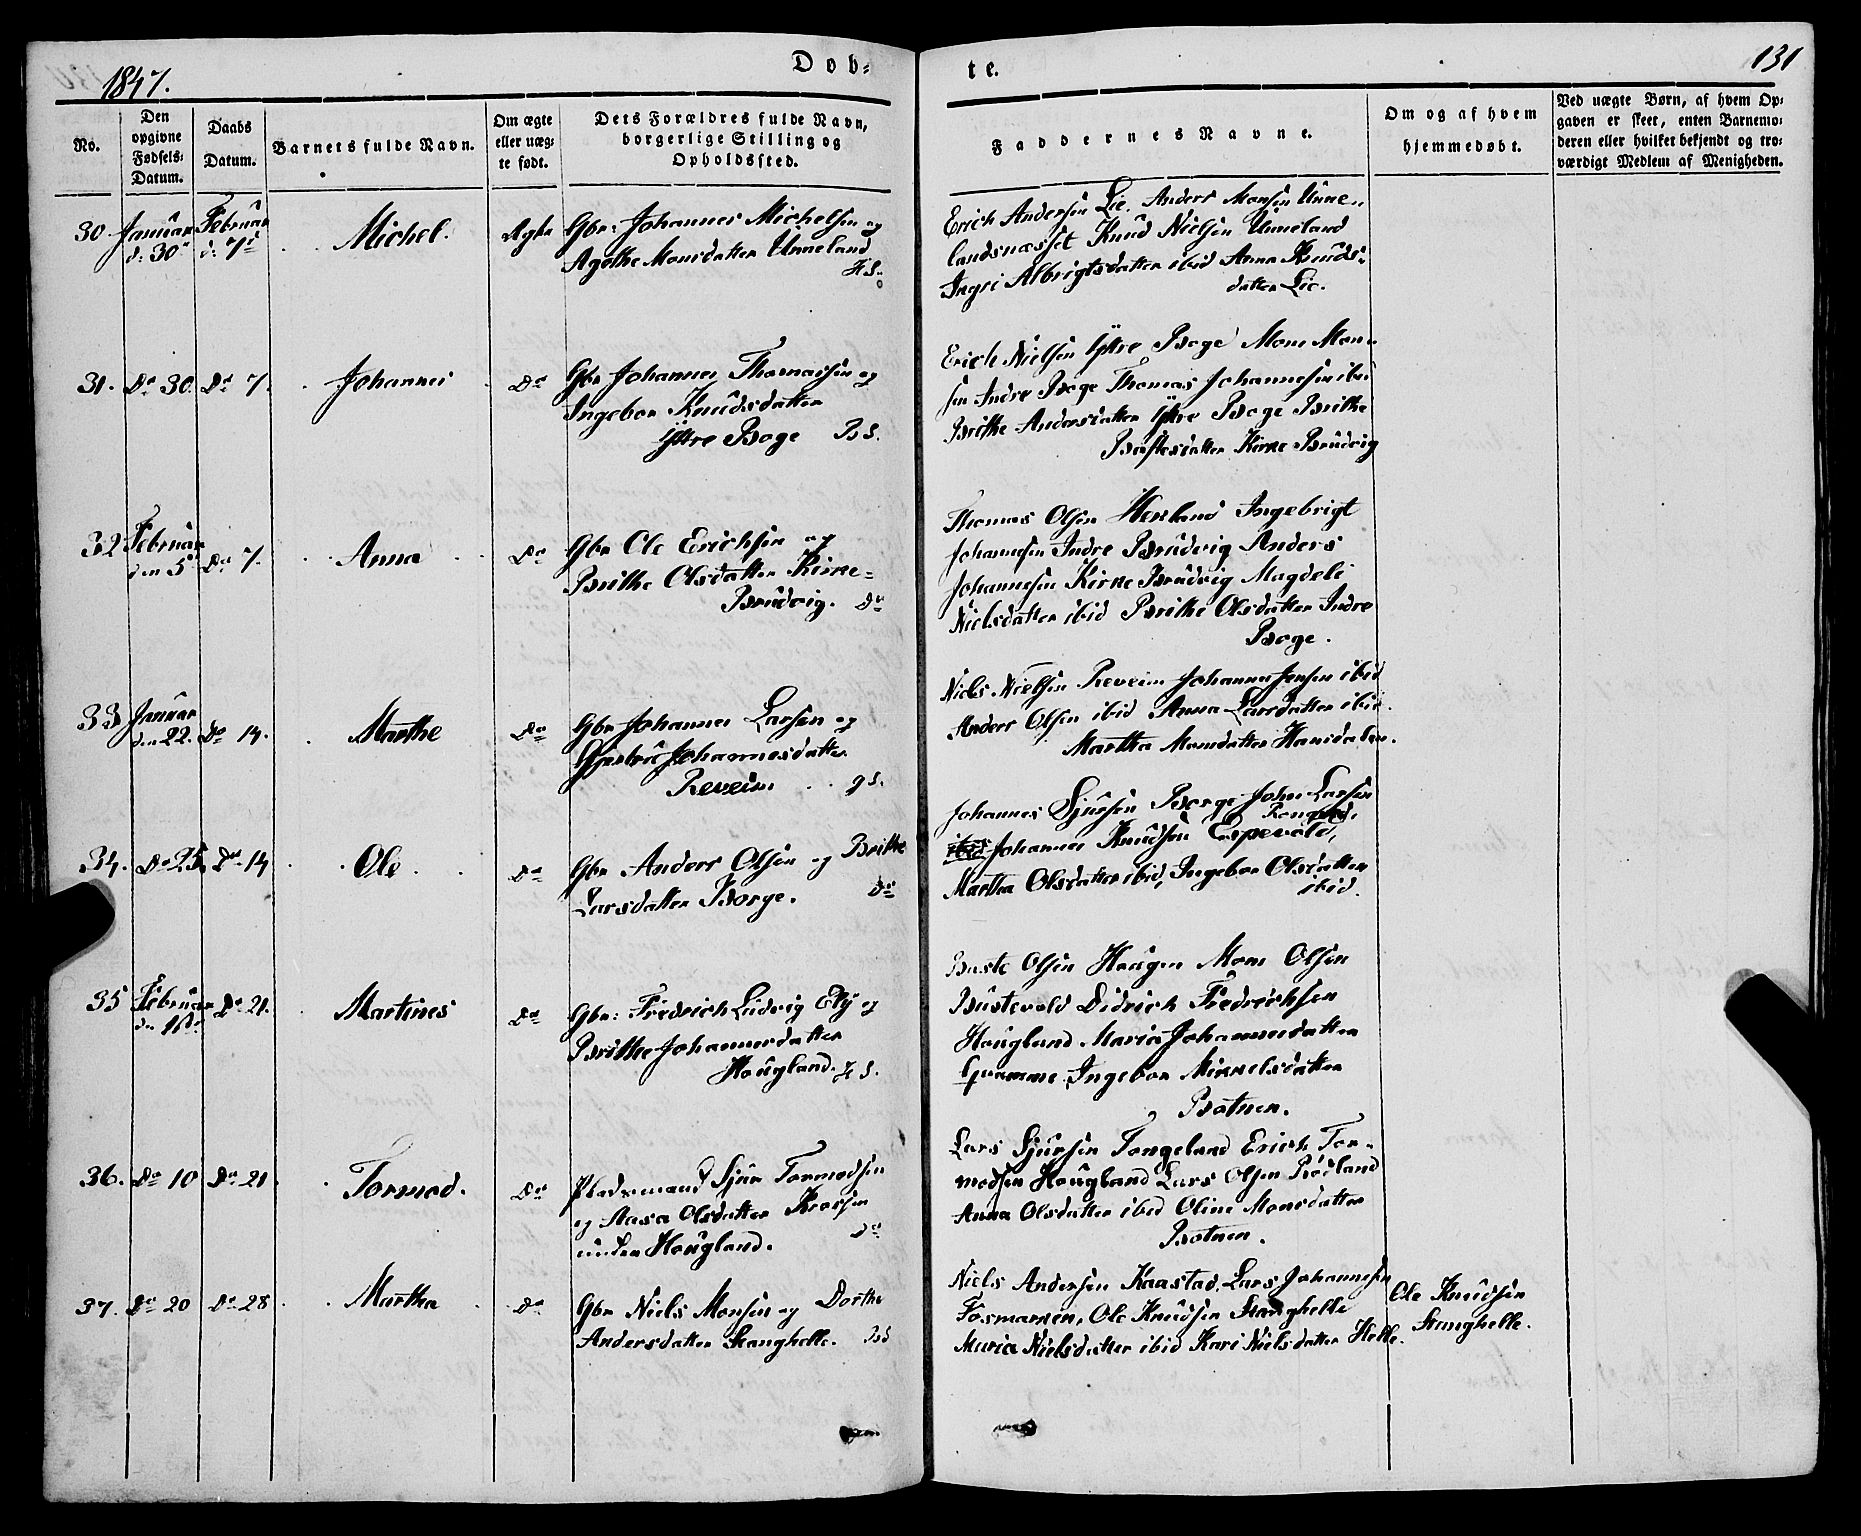 1847.
Dob-
te.
131
No.
Den opgivne Fødsels-Datum.
Daabs Datum.
Barnets fulde Navn.
Om ægte eller uægte født.
Dets Forældres fulde Navn, borgerlige Stilling og Opholdssted.
Faddernes Navne.
Om og af hvem hjemmedøbt.
Ved uægte Børn, af hvem Opgaven er skeet, enten Barnemoderen eller hvilket bekjendt og troværdigt Medlem af Menigheden.
30 Januar d: 30te Februar d: 7de Michel. Ægte
Gbr: Johannes Michelsen og
Agathe Monsdatter Unneland
H S.
Erich Andersen Lie. Anders Monsen Unne-
landsnæsset Knud Nielsen Unneland
Ingri Albrigtsdatter ibid Anna Knuds-
datter Lie.
31. Do 30. Do 7. Johannes Do
Gbr Johannes Thomassen og
Ingebor Knudsdatter
Ytre Boge B S.
Erich Nielsen Ytre Boge Mons Mon-
sen Indre Boge Thomas Johannesen ibid
Brithe Andersdatter Ytre Boge Brithe
Kirke Brudvig
32 Februar den 5 Do 7. Anna Do
Gbr Ole Erichsen og
Brithe Olsdatter Kirke-
Brudvig. Do
Thomas Olsen Herland Ingebrigt
Johannesen Indre Brudvig Anders
Johannesen Kirke Brudvig Magdeli
Nielsdatter ibid Brithe Olsdatter Indre
Boge.
33 Januar den 22. Do 14. Marthe Do
Gbr Johannes Larsen og
Gjertrü Johannesdatter
Reveim G S.
Niels Nielsen Reveim Johannes Jensen ibid
Anders Olsen ibid Anna Larsdatter ibid.
Martha Monsdatter Hansdalen.
34. Do 25. Do 14 Ole Do
Gbr Anders Olsen og Brithe
Larsdatter Borge. Do
Johannes Sjursen Borge John Larsen
ibid Johannes Knudsen Espevold,
Martha Olsdatter ibid, Ingebor Olsdatter
ibid.
35 Februar den 16de Do 21. Martines Do
Gbr: Fredrich Ludvig Ely og
Brithe Johannesdatter
Hougland. H S.
Baste Olsen Hougen Mons Olsen
Bustevold Didrich Fredrichsen
Hougland Maria Johannesdatter
Gramme Ingebor Mikkelsdatter
Botnen.
36. Do 10 Do 21 Tormod. Do
Pladsmand Sjur Tormodsen
og Aasa Olsdatter Krossen
under Hougland. Do
Lars Sjursen Tongeland Erich Tor-
modsen Hougland Lars Olsen Rödland
Anna Olsdatter ibid Oline Monsdatter
Botnen.
37. Do 20 Do 28 Martha Do
Gbr Niels Monsen og Dorthe
Andersdatter Stanghelle. BS
Niels Andersen Kaastad, Lars Johannesen
Fosmarken, Ole Knudsen Stanghelle
Maria Nielsdatter ibid Kari Nielsdatter Helle.
Ole Knudsen
Stanghelle.